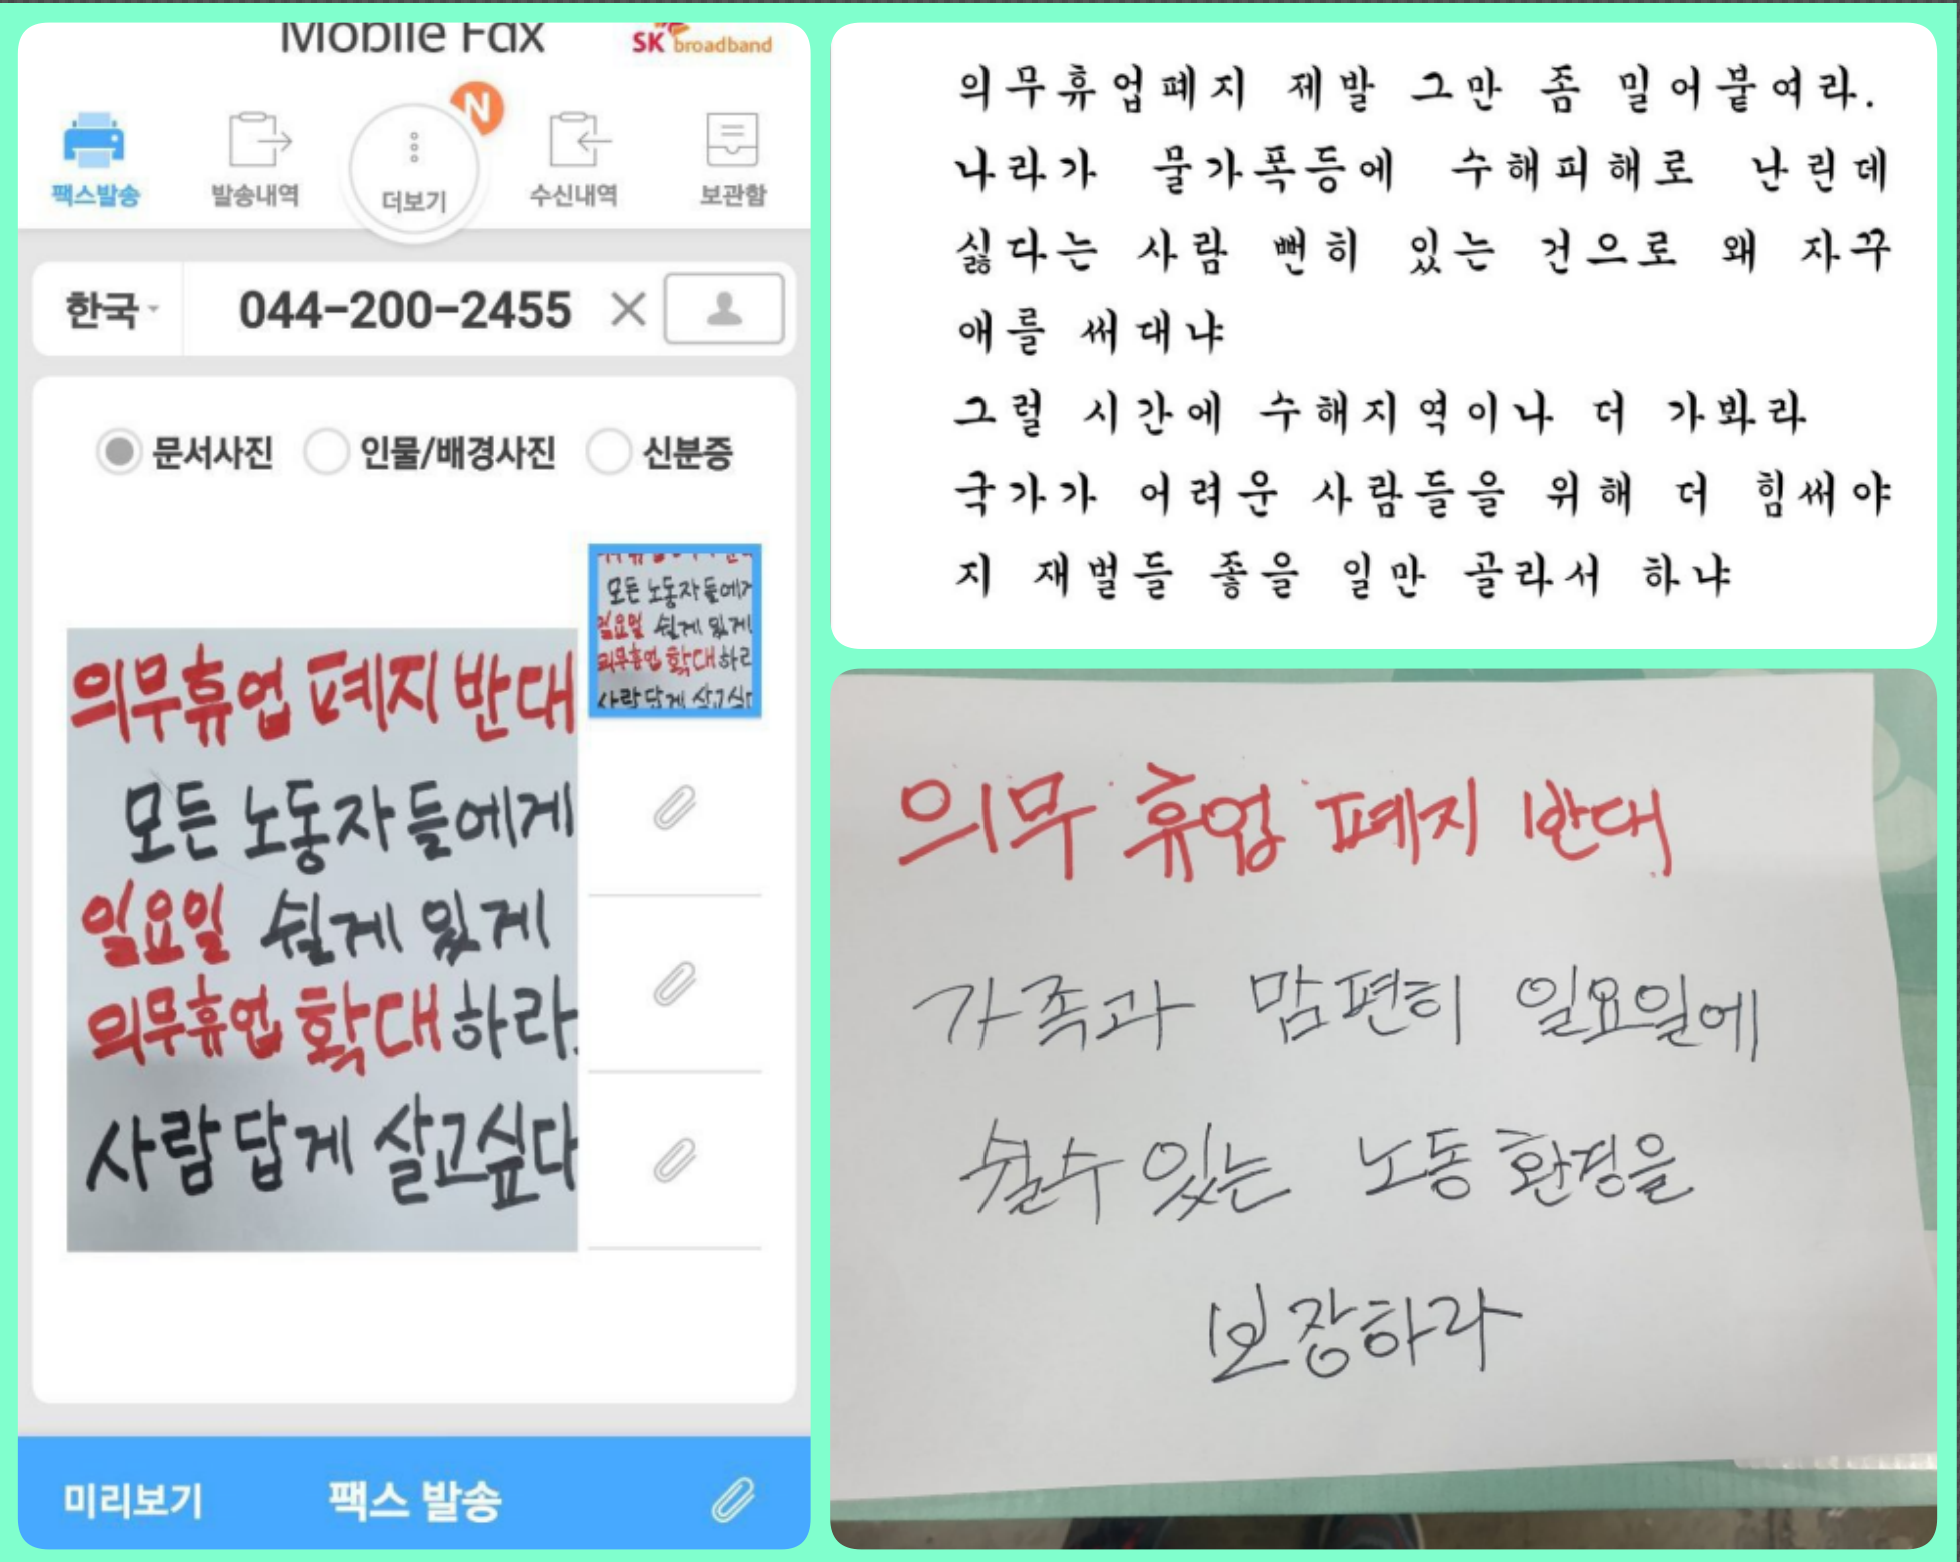 Mobile Fax
SK broadband
N
팩스발송
발송내역
더보기
수신내역
보관함
한국
044-200-2455
문서사진
인물/배경사진
신분증
의무휴업 폐지 반대
모든 노동자들에게
일요일 쉴게 있게
의무휴업 확대하라.
사람답게 살고싶다
모든 노동자들에게
일요일 쉴게 있게
의무휴업 확대하라
사람답게 살고싶다
미리보기
팩스 발송
의무휴업폐지 제발 그만 좀 밀어붙여라.
나라가 물가폭등에 수해피해로 난린데
싫다는 사람 뻔히 있는 건으로 왜 자꾸
애를 써대냐
그럴 시간에 수해지역이나 더 가봐라
국가가 어려운 사람들을 위해 더 힘써야
지 재벌들 좋을 일만 골라서 하냐
의무 휴업 폐지 반대
가족과 맘편히 일요일에
쉴수 있는 노동환경을
보장하라